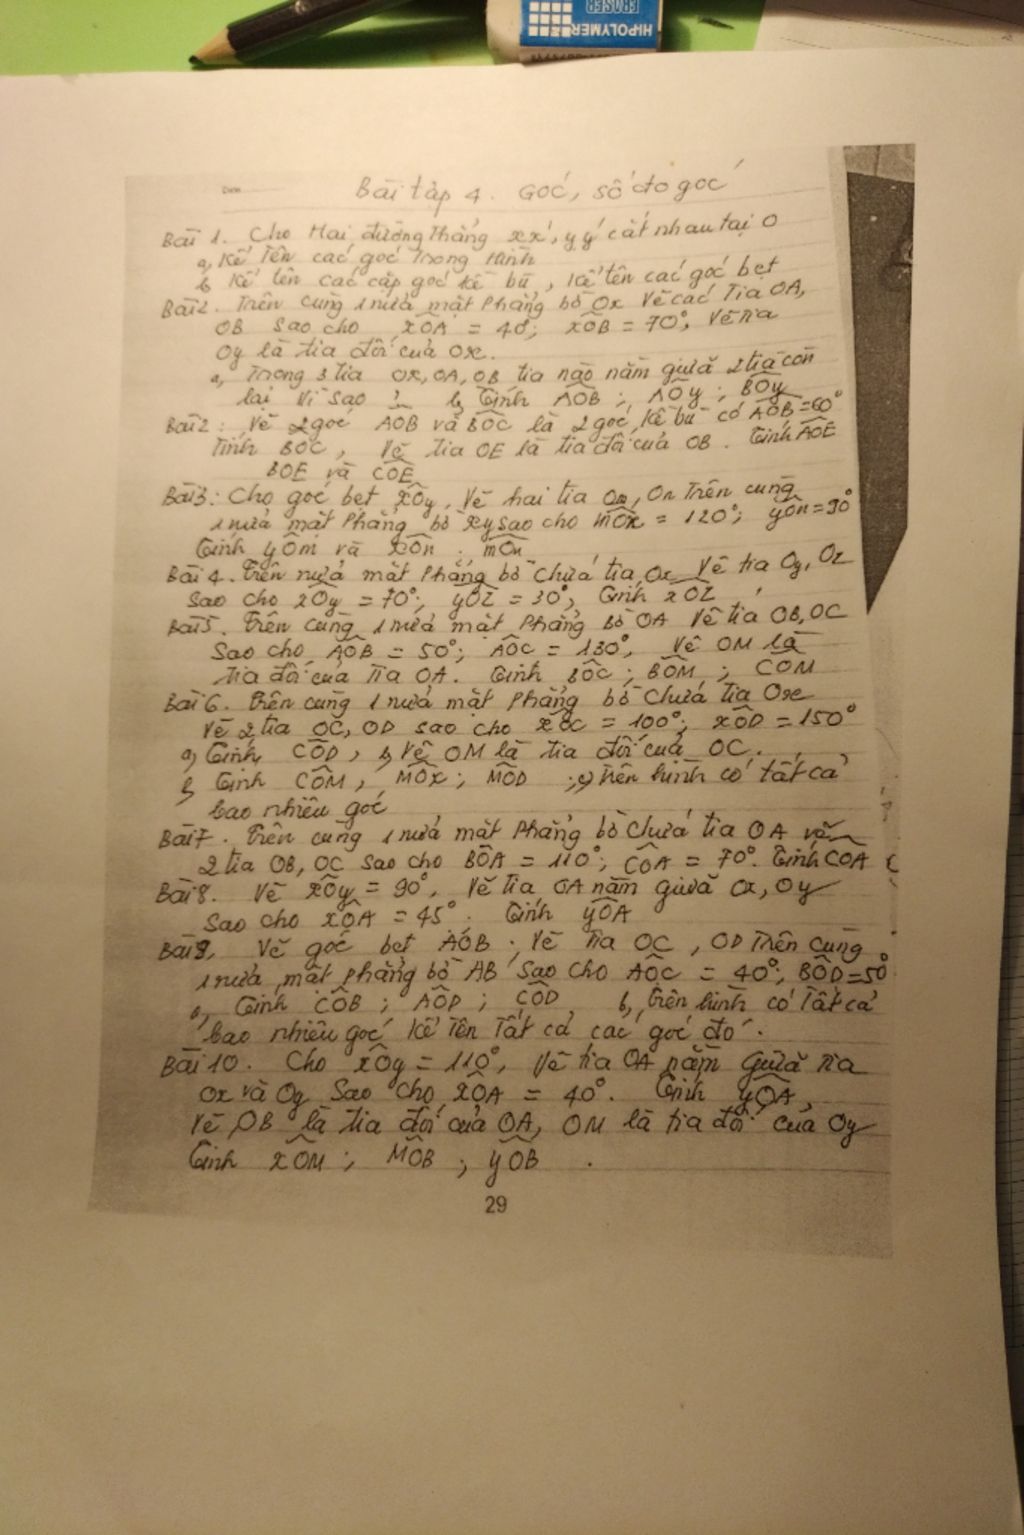 HIPOLYMER
ERASER
Bài tập 4. Góc, số đo góc
Bài 1. Cho Hai đường thẳng xx', yy' cắt nhau tại O
a, Kể tên các góc trong hình
b, Kể tên các cặp góc kề bù, kể tên các góc bẹt
Bài 2. Trên cùng 1 nửa mặt phẳng bờ Ox vẽ các tia OA,
OB sao cho xÔA = 40°; xÔB = 70°, vẽ tia
Oy là tia đối của Ox.
a, Trong 3 tia Ox, OA, OB tia nào nằm giữa 2 tia còn
lại vì sao? b, Tính AÔB; AÔy; BÔy
Bài 2: Vẽ 2 góc AÔB và BÔC là 2 góc kề bù có AÔB = 60°
Tính BÔC, Vẽ tia OE là tia đối của OB. Tính AÔE
BOE và CÔE
Bài 3: Cho góc bẹt xÔy, Vẽ hai tia Om, On trên cùng
1 nửa mặt phẳng bờ xy sao cho mÔx = 120°; yÔn = 90°
Tính yÔm và xÔn; mÔn
Bài 4. Trên nửa mặt phẳng bờ chứa tia Ox Vẽ tia Oy, Oz
sao cho xÔy = 70°; yÔz = 30°, Tính xÔz
Bài 5. Trên cùng 1 nửa mặt phẳng bờ OA Vẽ tia OB, OC
Sao cho AÔB = 50°; AÔC = 130°, Vẽ OM là
tia đối của tia OA. Tính BÔC; BÔM; CÔM
Bài 6. Trên cùng 1 nửa mặt phẳng bờ chứa tia Ox
Vẽ 2 tia OC, OD sao cho xÔC = 100°; xÔD = 150°
a, Tính CÔD, b, Vẽ OM là tia đối của OC.
b, Tính CÔM, MÔx; MÔD; c, Trên hình có tất cả
bao nhiêu góc
Bài 7. Trên cùng 1 nửa mặt phẳng bờ chứa tia OA vẽ
2 tia OB, OC sao cho BÔA = 110°; CÔA = 70°. Tính COA
Bài 8. Vẽ xÔy = 90°, Vẽ tia OA nằm giữa Ox, Oy
Sao cho xÔA = 45°. Tính yÔA
Bài 9, Vẽ góc bẹt AÔB. Vẽ tia OC, OD trên cùng
1 nửa mặt phẳng bờ AB sao cho AÔC = 40°; BÔD = 50°
a, Tính CÔB; AÔD; CÔD b, Trên hình có tất cả
bao nhiêu góc kể tên tất cả các góc đó.
Bài 10. Cho xÔy = 110°, Vẽ tia OA nằm giữa tia
Ox và Oy Sao cho xÔA = 40°. Tính yÔA,
Vẽ OB là tia đối của OA, OM là tia đối của Oy
Tính xÔM; MÔB; yÔB.
29